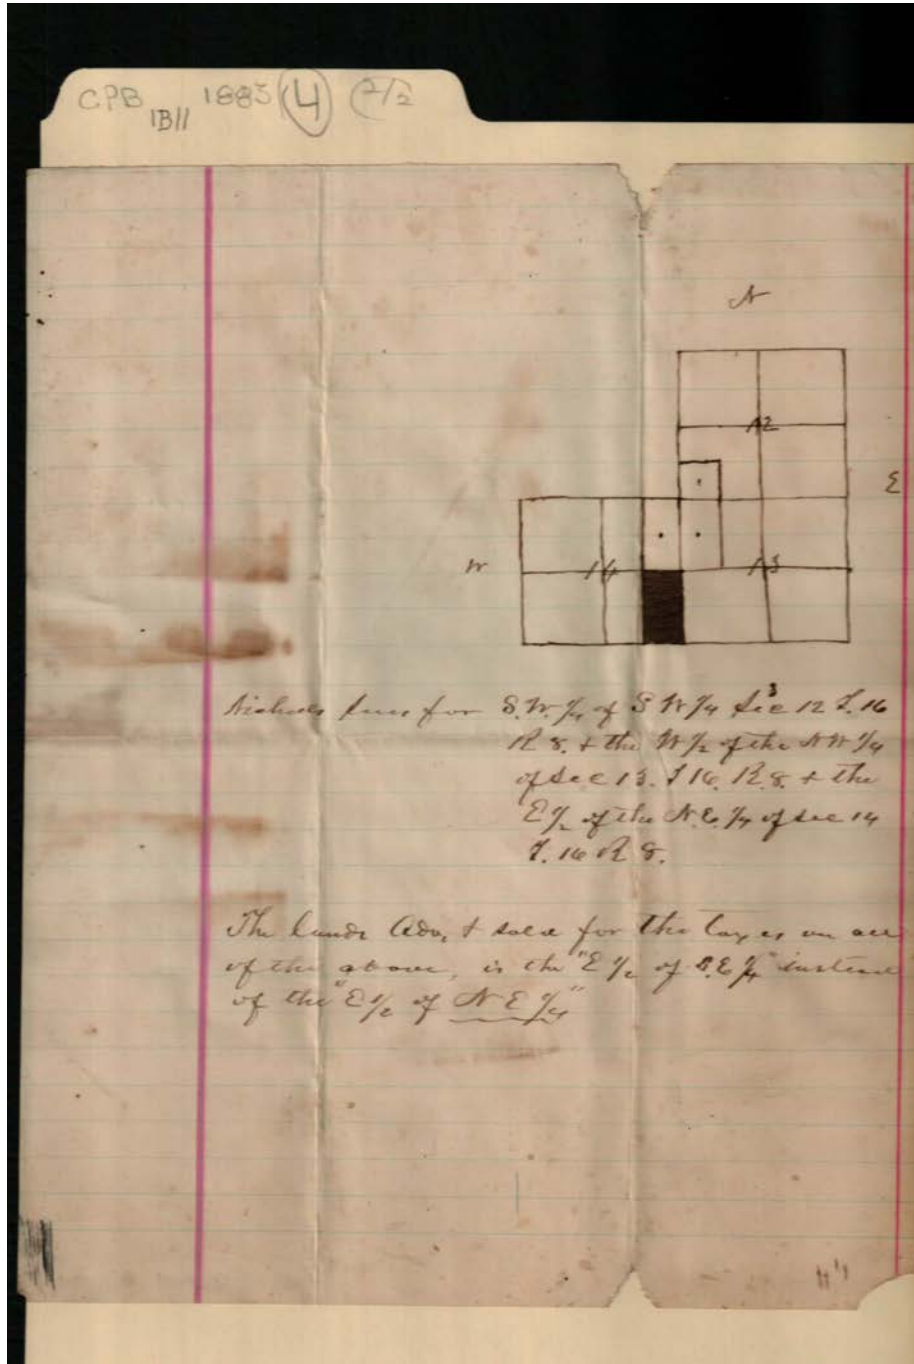 CPB 1B11 1883 4 2/2
N
12
E
W 14 13
Nichols sues for S.W. 1/4 of S W 1/4 Sec 12 T. 16
R 8. + the W 1/2 of the N W 1/4
of Sec 13. T 16. R. 8. + the
E 1/2 of the N. E. 1/4 of Sec 14
T. 16 R 8.
The lands Adv. + sold for the taxes on acc
of the above, is the "E 1/2 of S.E 1/4" instead
of the "E 1/2 of N E 1/4"